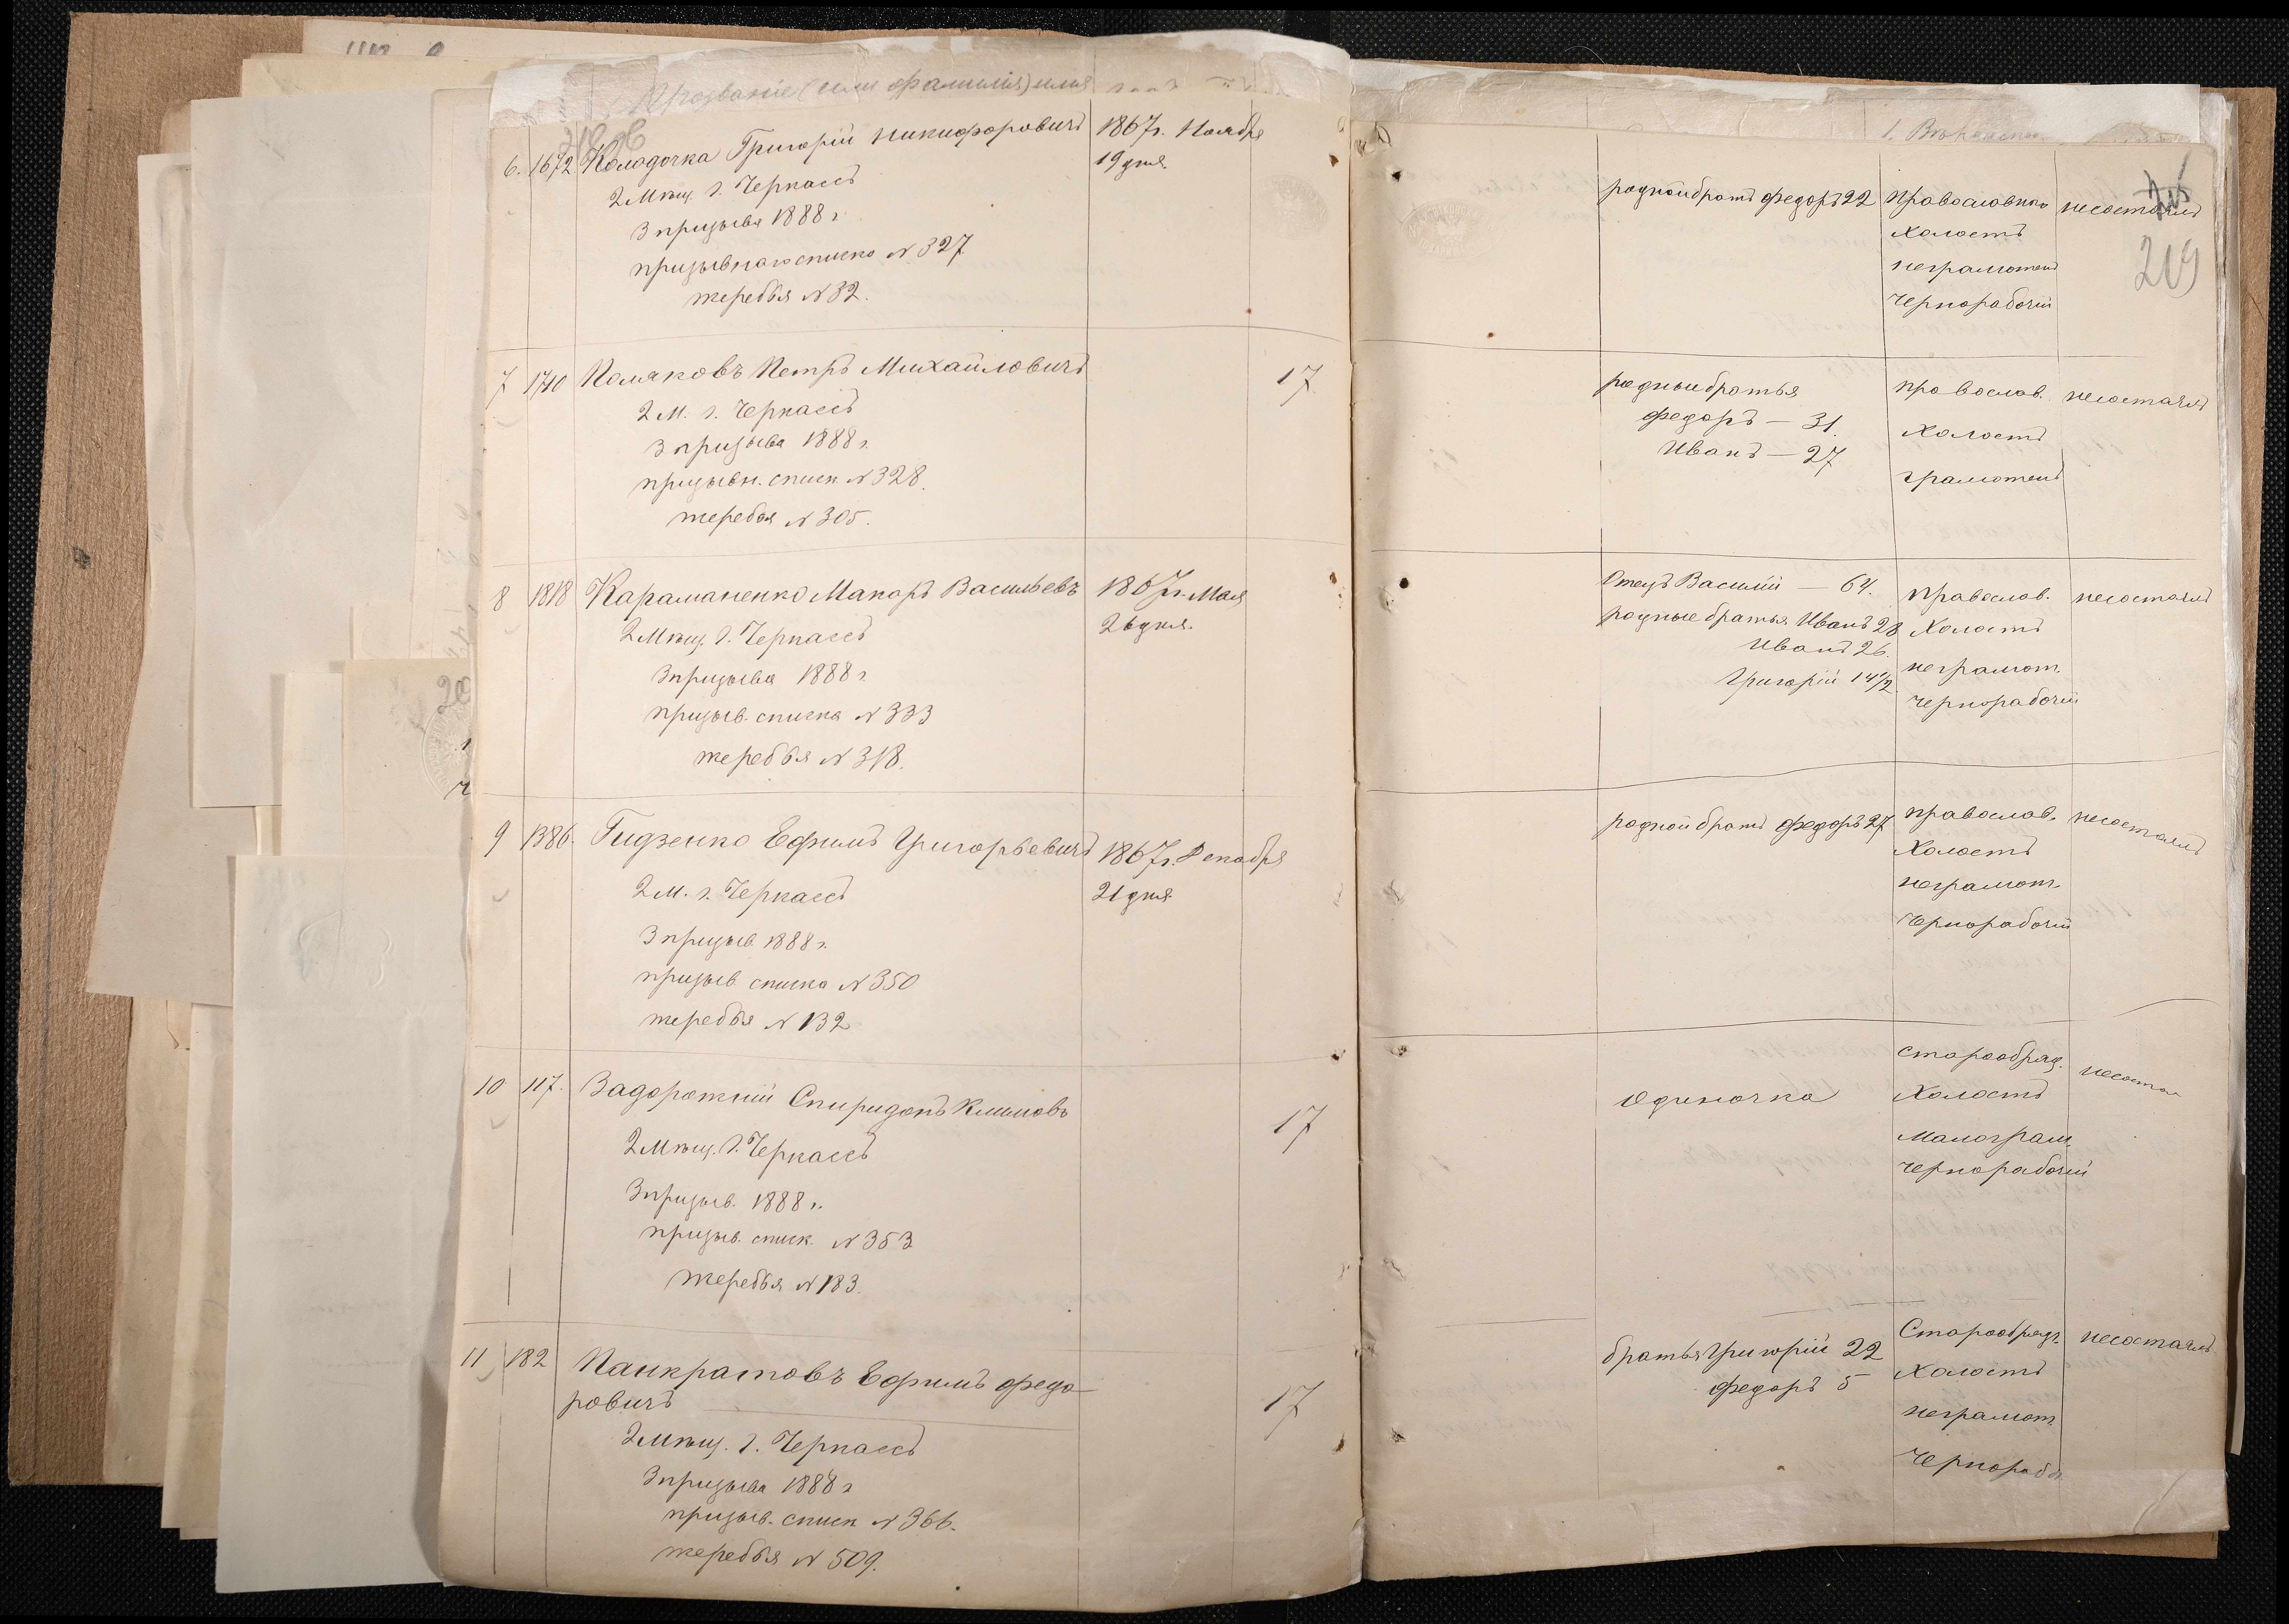 Прозваніе (или фамилія) имя
6. 1672 Колодочка Григорій Никифоровичъ 1867г. Ноября
2 Мѣщ. г. Черкассъ 19 дня.
3 призыва 1888 г
призывнаго списка № 327
жеребья № 32.
родной братъ Федоръ 22 православнаго несостоялъ
Холостъ
неграмотенъ
Чернорабочій
219
7 1710 Поляковъ Петръ Михайловичъ 17
2 М. г. Черкассъ
3 призыва 1888 г.
призывн. списк. № 328.
жеребья № 305.
родные братья православ. несостоялъ
Федоръ — 31. Холостъ
Иванъ — 27 грамотенъ
8 1818 Караманенко Макаръ Васильевъ 1867г. Мая
2 Мѣщ. г. Черкассъ 26 дня.
3 призыва 1888 г.
призыв. списка № 333
жеребья № 318.
Отецъ Василій — 64. православ. несостоялъ
родные братья Иванъ 28 Холостъ
Иванъ 26. неграмот.
Григорій 14 1/2 чернорабочій
9 1386. Гидзенко Ефимъ Григорьевичъ 1867г. Декабря
2 М. г. Черкассъ 21 дня
3 призыв 1888 г.
призыв списка № 350
жеребья № 132
родной братъ Федоръ 27 православ. несостоялъ
Холостъ
неграмот.
Чернорабочій
10 117. Задорожній Спиридонъ Климовъ 17
2 Мѣщ. г. Черкассъ
3 призыв. 1888 г.
призыв. списк. № 353
жеребья № 183.
Одиночка старообряд. несостоя
Холостъ
Малограм.
чернорабочій
11 182 Панкратовъ Ефимъ Федо-
ровичъ 17
2 Мѣщ. г. Черкассъ
3 призыва 1888 г
призыв. списк № 366.
жеребья № 509.
братья Григорій 22 Старообряд. несостоялъ
Федоръ 5 Холостъ
неграмот.
Чернораб.